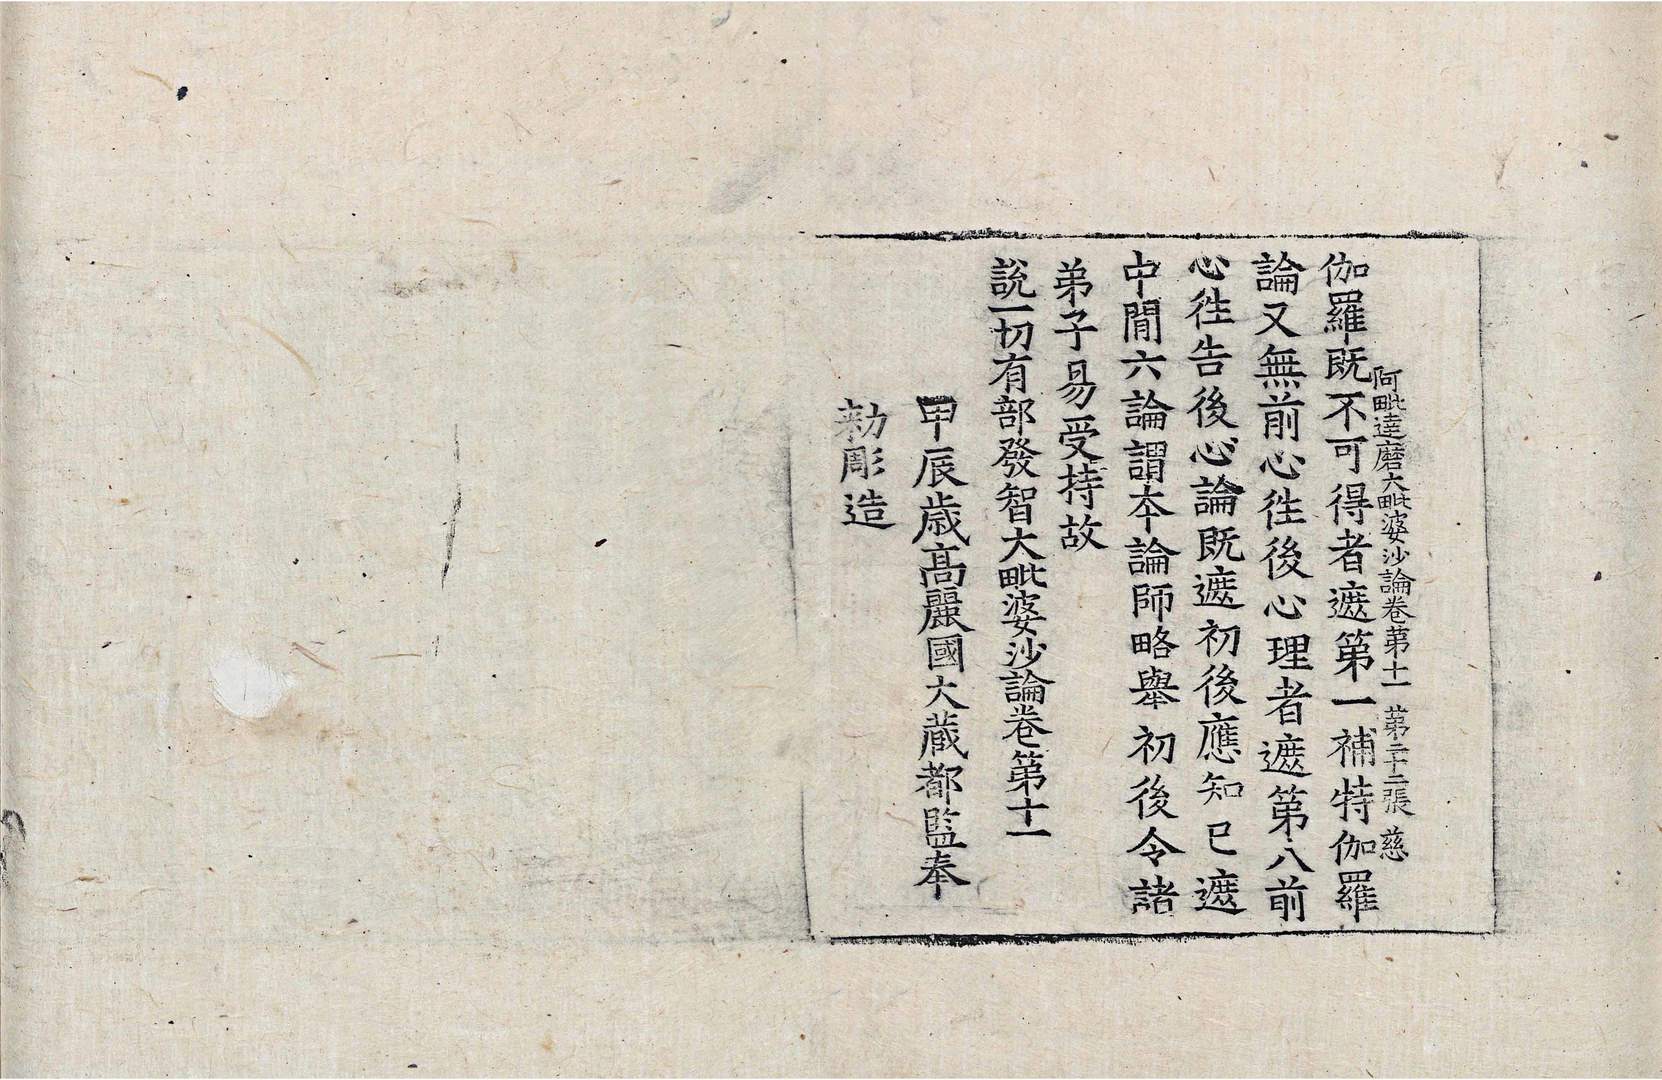 阿毗達磨大毗婆沙論卷第十一 第二十二張 慈
伽羅旣不可得者遮第一補特伽羅
論又無前心徃後心理者遮第八前
心徃告後心論旣遮初後應知已遮
中閒六論謂本論師略舉初後令諸
弟子易受持故
說一切有部發智大毗婆沙論卷第十一
甲辰歲高麗國大藏都監奉
勑彫造